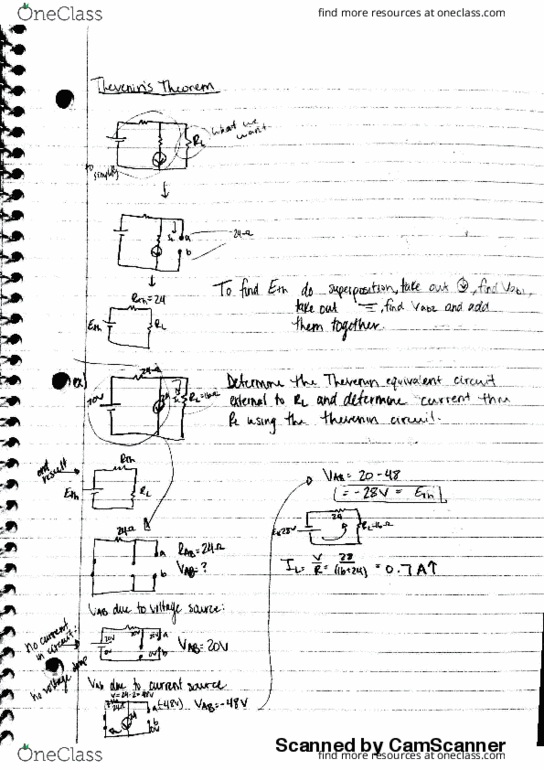 OneClass
find more resources at oneclass.com
Thevenin's Theorem
what we want
RL
to simplify
a
b
24Ω
Rth = 24
Eth
RL
To find Eth do superposition, take out, find Vab1,
take out, find Vab2 and add
them together.
ex)
24Ω
20V
RL=16Ω
Determine the Thevenin equivalent circuit
external to RL and determine current thru
RL using the thevenin circuit.
end result
Rth
Eth
RL
VAB = 20 - 48
= -28V = Eth
24Ω
a
b
RAB = 24Ω
VAB = ?
24
28V
RL=16Ω
IL = V/R = 28/(16+24) = 0.7A↑
VAB due to voltage source:
no current in circuit:
no voltage drop
20V
0V
20V
20V
a
0V
b
VAB = 20V
Vab due to current source
V=24·2=48V
24Ω
a(-48V)
b
0V
VAB = -48V
Scanned by CamScanner
OneClass
find more resources at oneclass.com